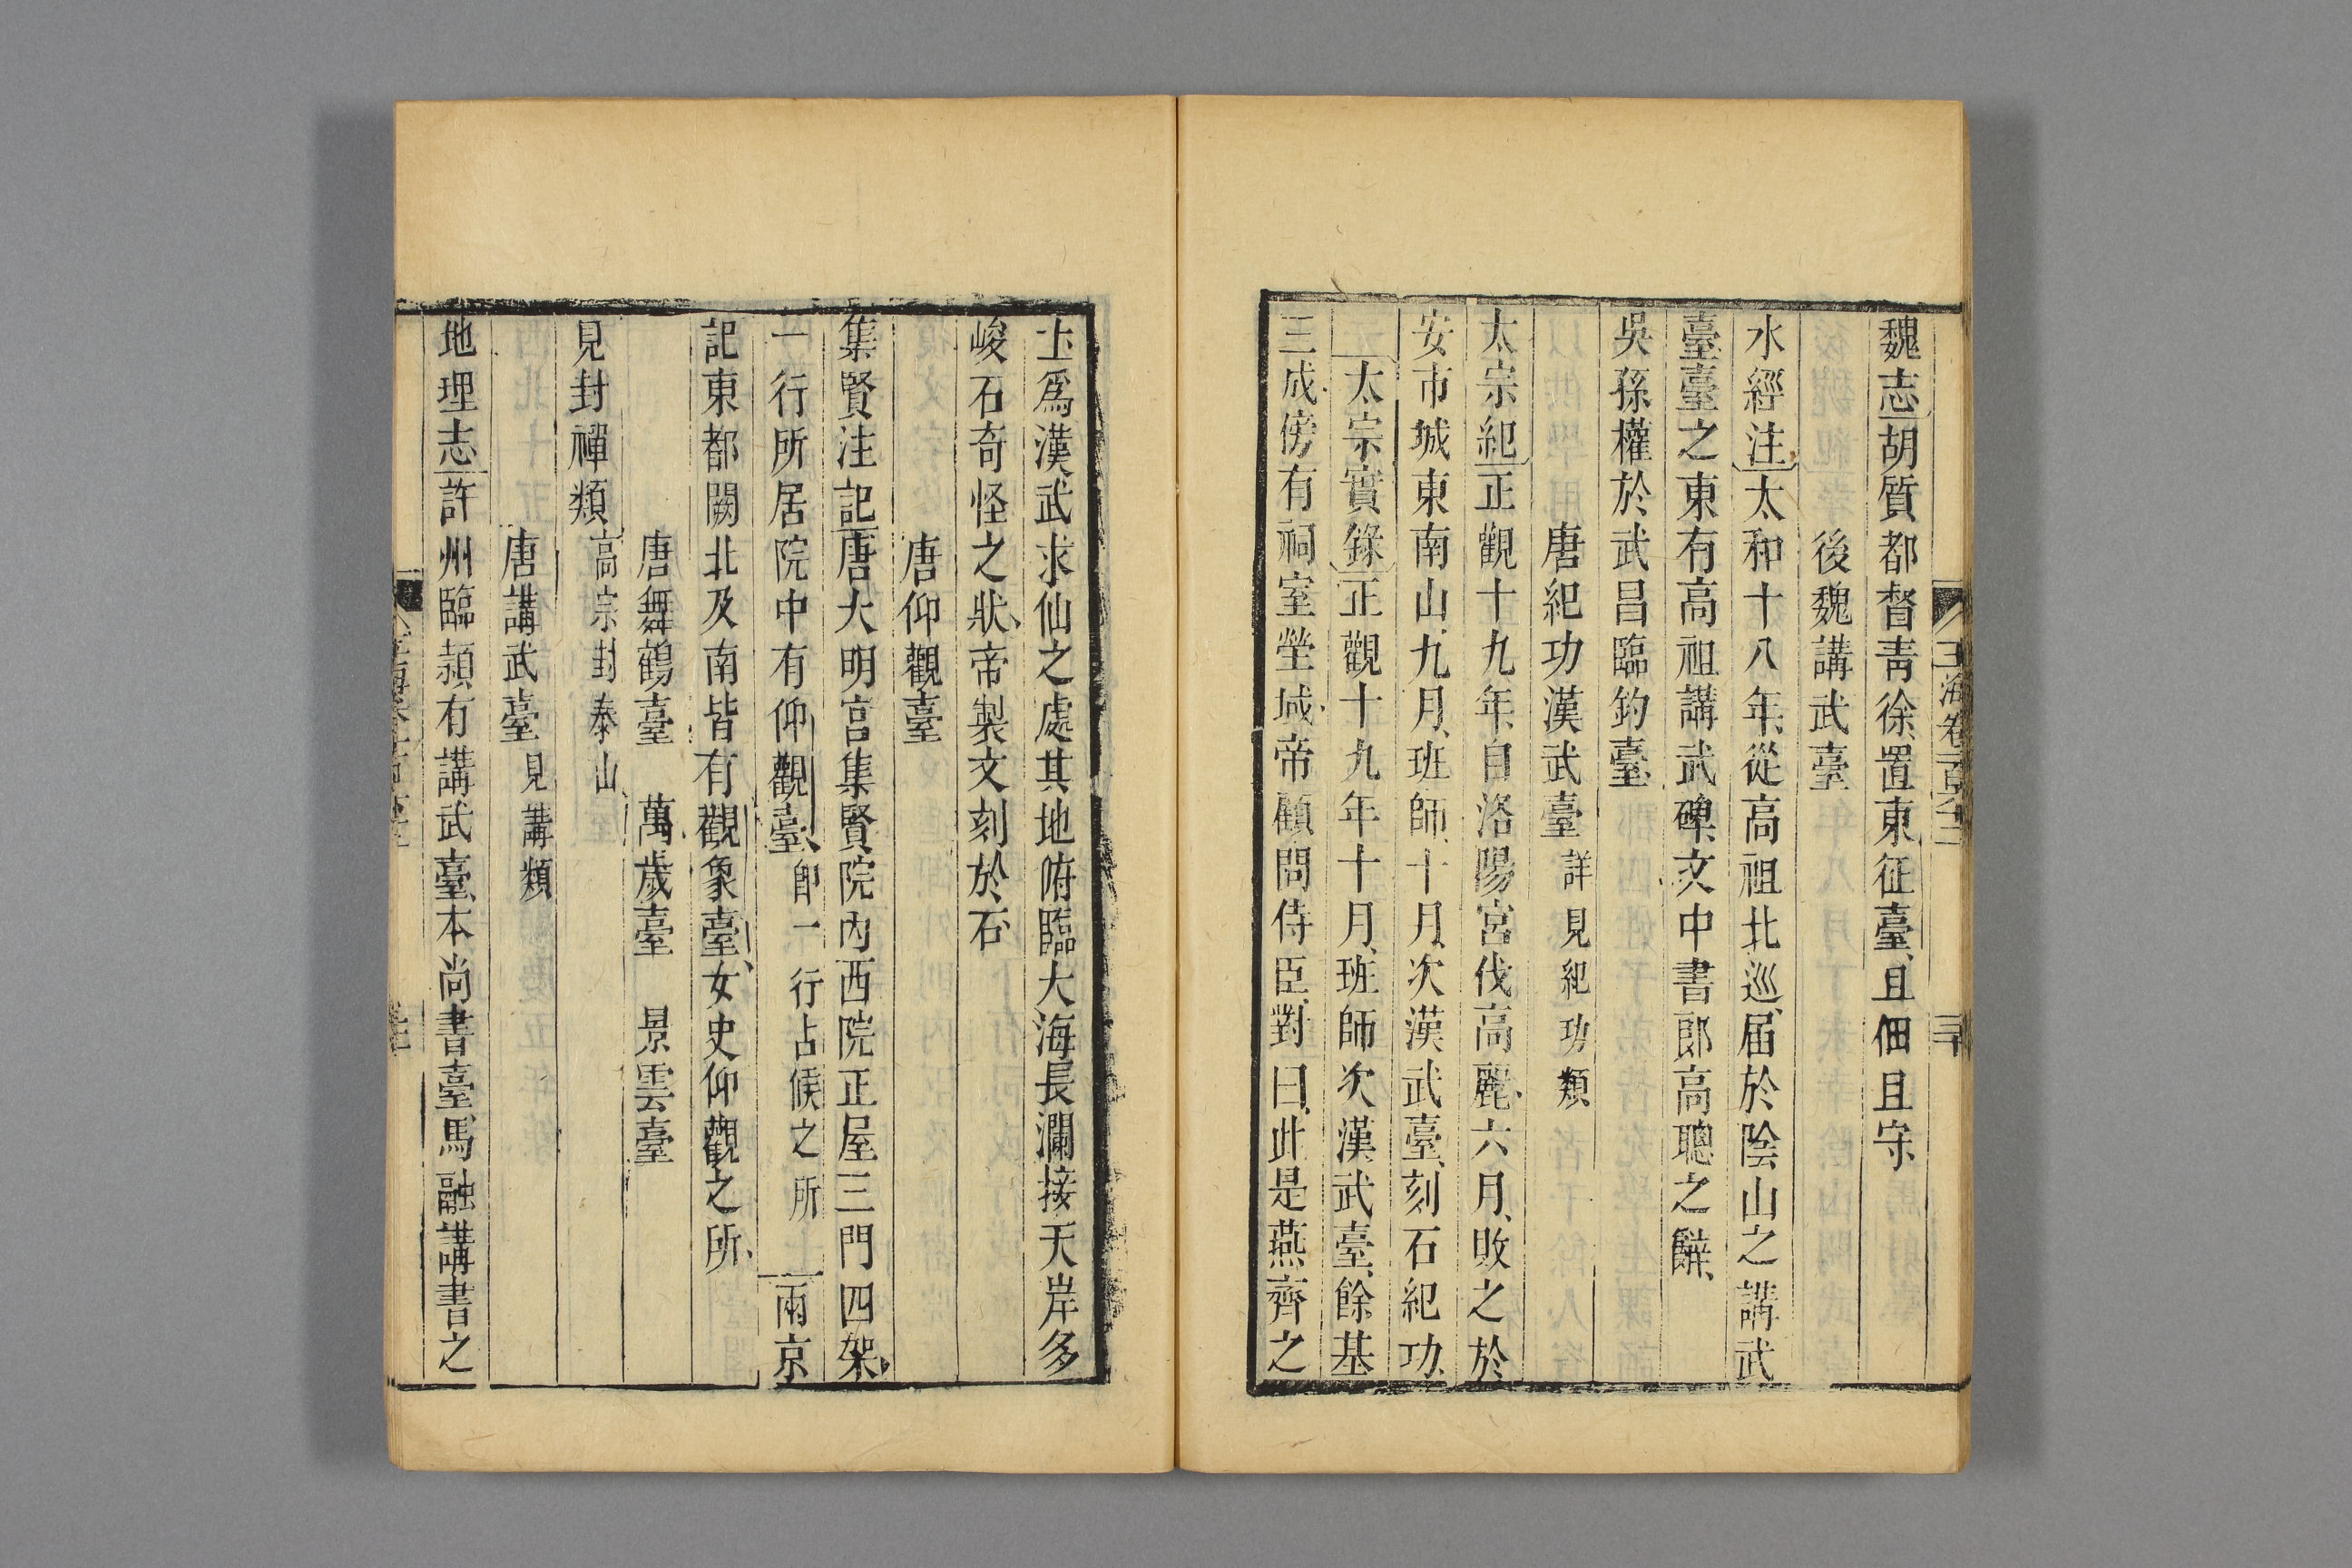 玉海卷一百六十二
三十
魏志胡質都督青徐置東征臺且佃且守
後魏講武臺
水經注太和十八年從高祖北巡届於陰山之講武
臺臺之東有高祖講武碑文中書郎高聰之辭
吳孫權於武昌臨釣臺
唐紀功漢武臺詳見紀功類
太宗紀正觀十九年自洛陽宮伐高麗六月敗之於
安市城東南山九月班師十月次漢武臺刻石紀功
太宗實錄正觀十九年十月班師次漢武臺餘基
三成傍有祠室塋域帝顧問侍臣對曰此是燕齊之
士爲漢武求仙之處其地俯臨大海長瀾接天岸多
峻石奇怪之狀帝製文刻於石
唐仰觀臺
集賢注記唐大明宮集賢院內西院正屋三門四架
一行所居院中有仰觀臺卽一行占候之所兩京
記東都闕北及南皆有觀象臺女史仰觀之所
唐舞鶴臺 萬歲臺 景雲臺
見封禪類高宗封泰山
唐講武臺見講類
地理志許州臨潁有講武臺本尚書臺馬融講書之